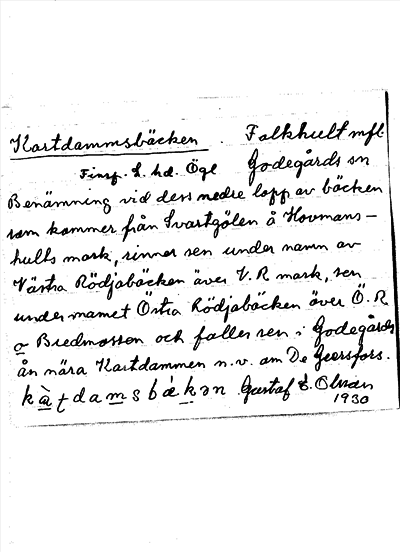 Kartdammsbäcken. Falkhult mfl
Finsp. L. hd. Ögl Godegårds sn
Benämning vid dess nedre lopp av bäcken
som kommer från Svartgölen å Hovmans-
hults mark, rinner sen under namn av
Västra Rödjabäcken över V. R mark, sen
under namet Östra Rödjabäcken över Ö. R
o Bredmossen och faller sen i Godegårds
ån nära Kartdammen n.v. om De Geersfors.
Gustaf E. Olsson
1930